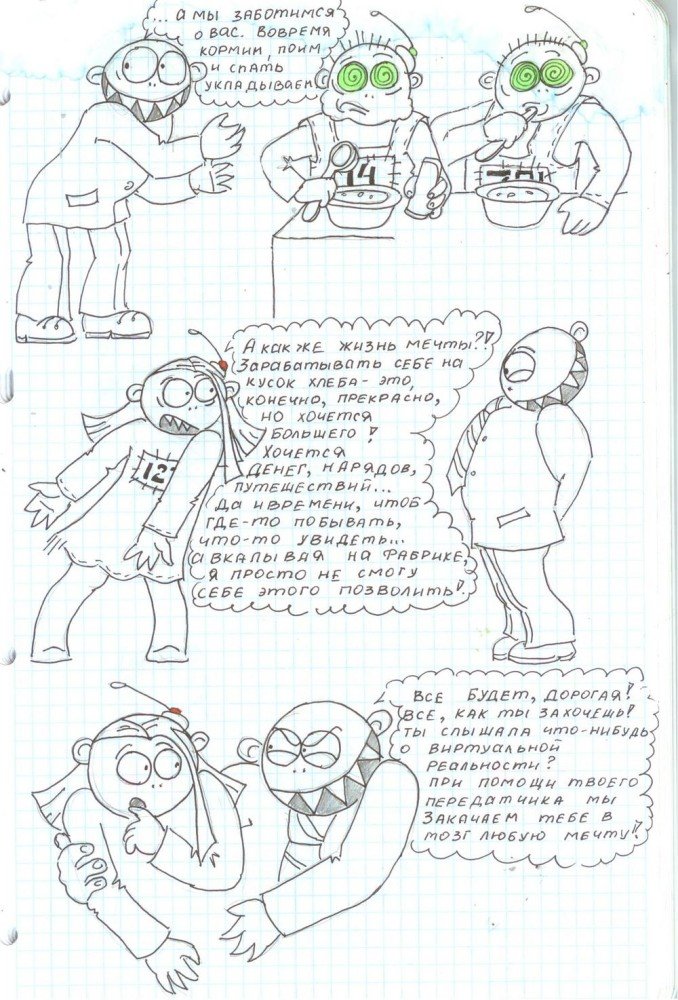 ... а мы заботимся
о вас. Вовремя
кормим, поим
и спать
укладываем.
14
А как же жизнь мечты?!
Зарабатывать себе на
кусок хлеба - это,
конечно, прекрасно,
но хочется
большего!
Хочется
денег, нарядов,
путешествий...
Да и времени, чтоб
где-то побывать,
что-то увидеть...
а вкалывая на фабрике,
я просто не смогу
себе этого позволить!
12
Все будет, дорогая!
Все, как ты захочешь!
Ты слышала что-нибудь
о виртуальной
реальности?
При помощи твоего
передатчика мы
закачаем тебе в
мозг любую мечту!